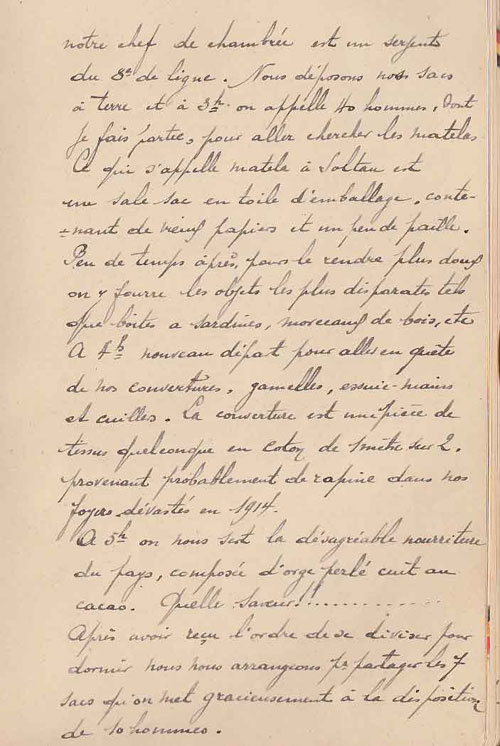 notre chef de chambrée est un sergent
du 8e de ligne. Nous déposons nos sacs
à terre et à 3h. on appelle 40 hommes, dont
je fais partie, pour aller chercher les matelas
Ce qui s'appelle matela à Soltau est
une sale sac en toile d'emballage, conte-
-nant de vieux papiers et un peu de paille.
Peu de temps après, pour le rendre plus doux
on y fourre les objets les plus disparates tels
que boites a sardines, morceaux de bois, etc
A 4h nouveau départ pour aller en quête
de nos couvertures, gamelles, essuie-mains
et cuilles. La couverture est une pièce de
tissus quelconque en coton de 1 mètre sur 2.
provenant probablement de rapine dans nos
foyers dévastés en 1914.
A 5h on nous sert la désagréable nourriture
du pays, composée d'orge perlé cuit au
cacao. Quelle saveur!...........
Après avoir reçu l'ordre de se diviser pour
dormir nous nous arrangeons pr partager les 7
sacs qu'on met gracieusement à la disposition
de 10 hommes.